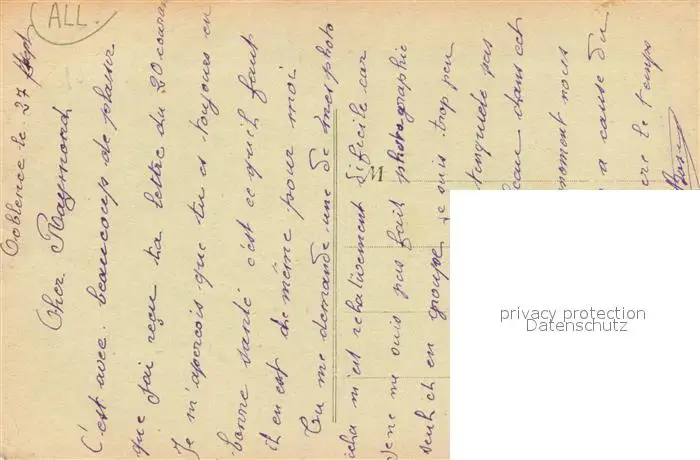 ALL.
Coblence le 27
Cher Raymond,
C'est avec beaucoup de plaisir
que j'ai reçu ta lettre du 20 couran
Je m'aperçois que tu es toujours en
bonne santé c'est ce qu'il faut
il en est de même pour moi
Tu me demande une de mes photo
cela m'est relativement dificile car
Je ne me suis pas fait photographié
seul, et en groupe je suis trop peu
pas
eau dans cet
moment nous
a cause du
le temps
M
privacy protection
Datenschutz